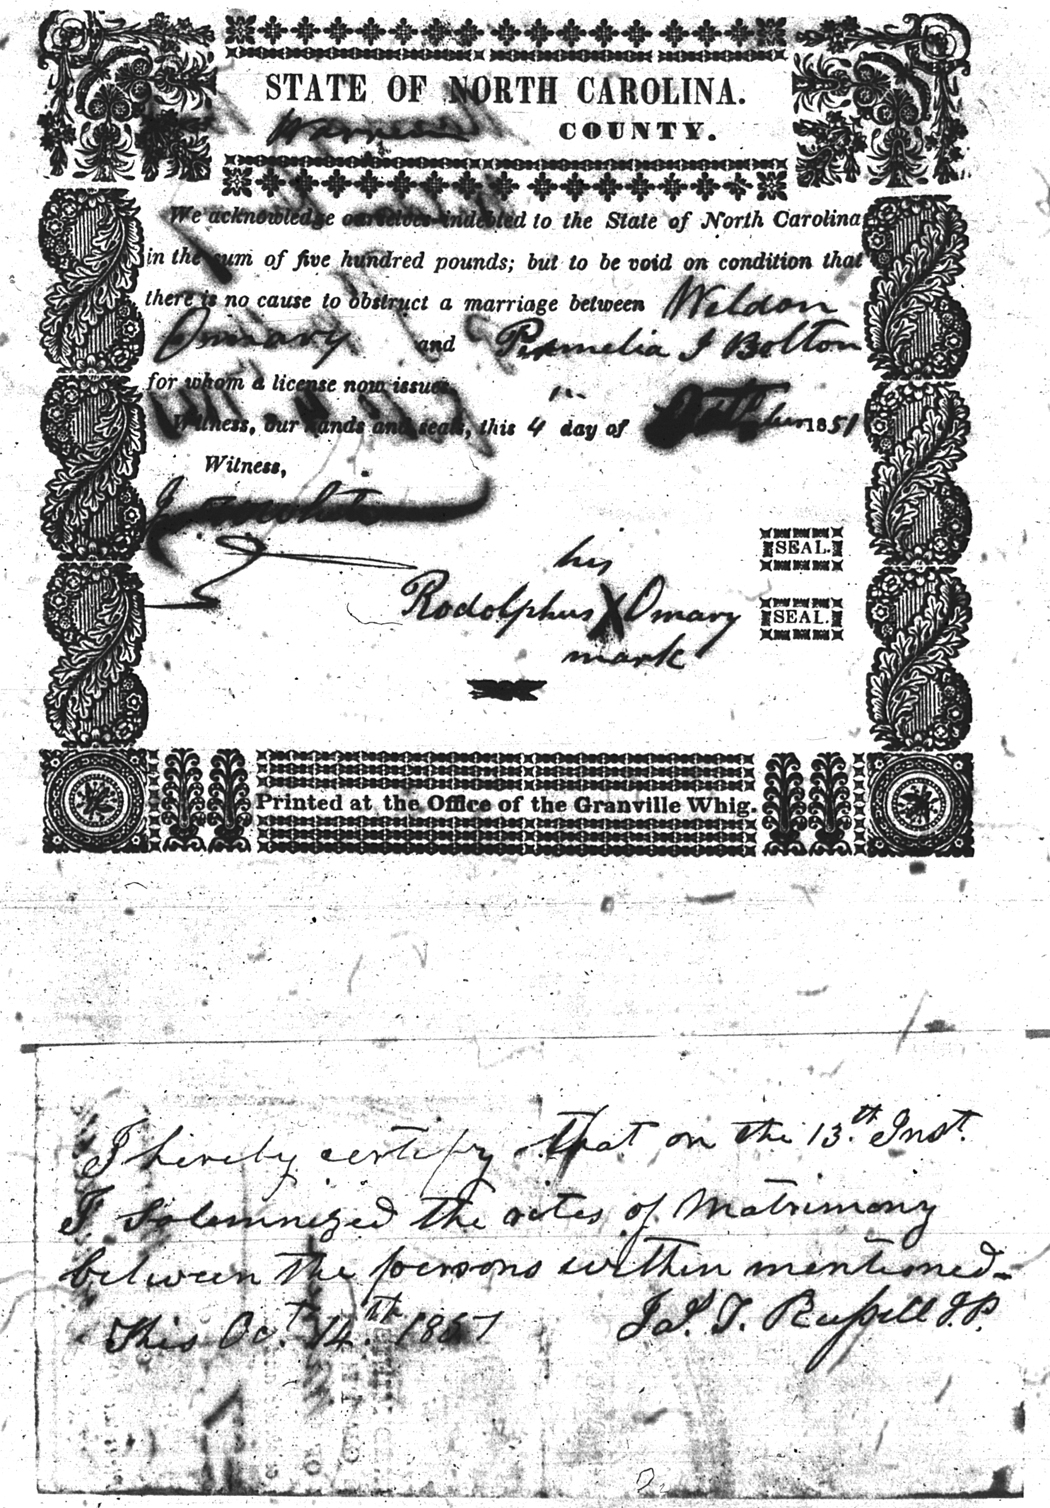 STATE OF NORTH CAROLINA.
Warren COUNTY.
We acknowledge ourselves indebted to the State of North Carolina
in the sum of five hundred pounds; but to be void on condition that
there is no cause to obstruct a marriage between Weldon
Omary and Permelia J Bolton
for whom a license now issues.
Witness, our hands and seals, this 4 day of 1851
Witness,
SEAL.
his
Rodolphus X Omary SEAL.
mark
Printed at the Office of the Granville Whig.
I hereby certify that on the 13.th Inst.
I Solemnized the rites of Matrimony
between the persons within mentioned
This Oct. 14.th 1851 T. Russell J.P.